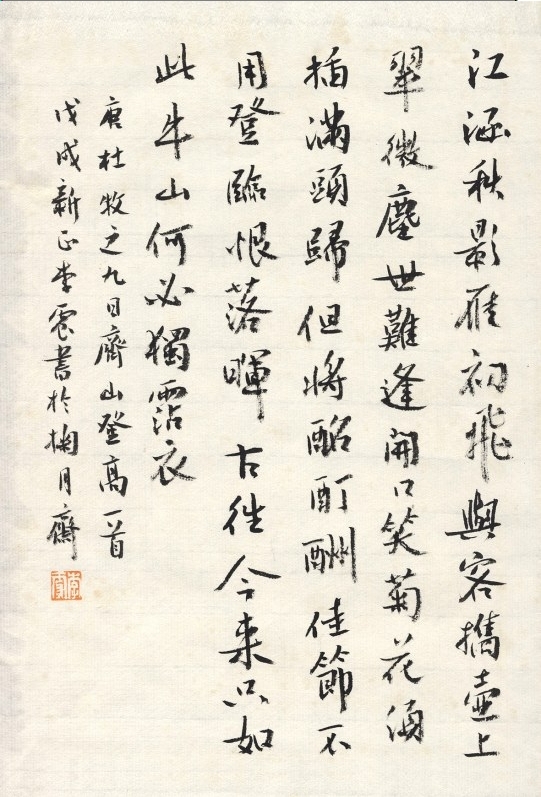 江涵秋影雁初飛與客攜壺上
翠微塵世難逢開口笑菊花湏
插滿頭歸但將酩酊酬佳節不
用登臨恨落暉古往今來只如
此牛山何必獨霑衣
唐杜牧之九日齊山登高一首
戊戌新正李雲書於掬月齋